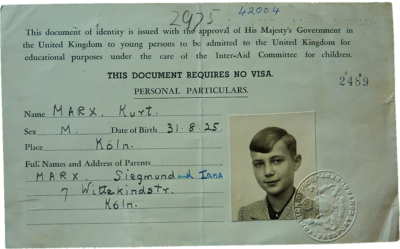 2975 42004
This document of identity is issued with the approval of His Majesty's Government in
the United Kingdom to young persons to be admitted to the United Kingdom for
educational purposes under the care of the Inter-Aid Committee for children.
THIS DOCUMENT REQUIRES NO VISA.
2489
PERSONAL PARTICULARS.
Name MARX, Kurt.
Sex M. Date of Birth 31.8.25.
Place Köln.
Full Names and Address of Parents
MARX, Siegmund and Irma
7 Wittekindstr.
Köln.